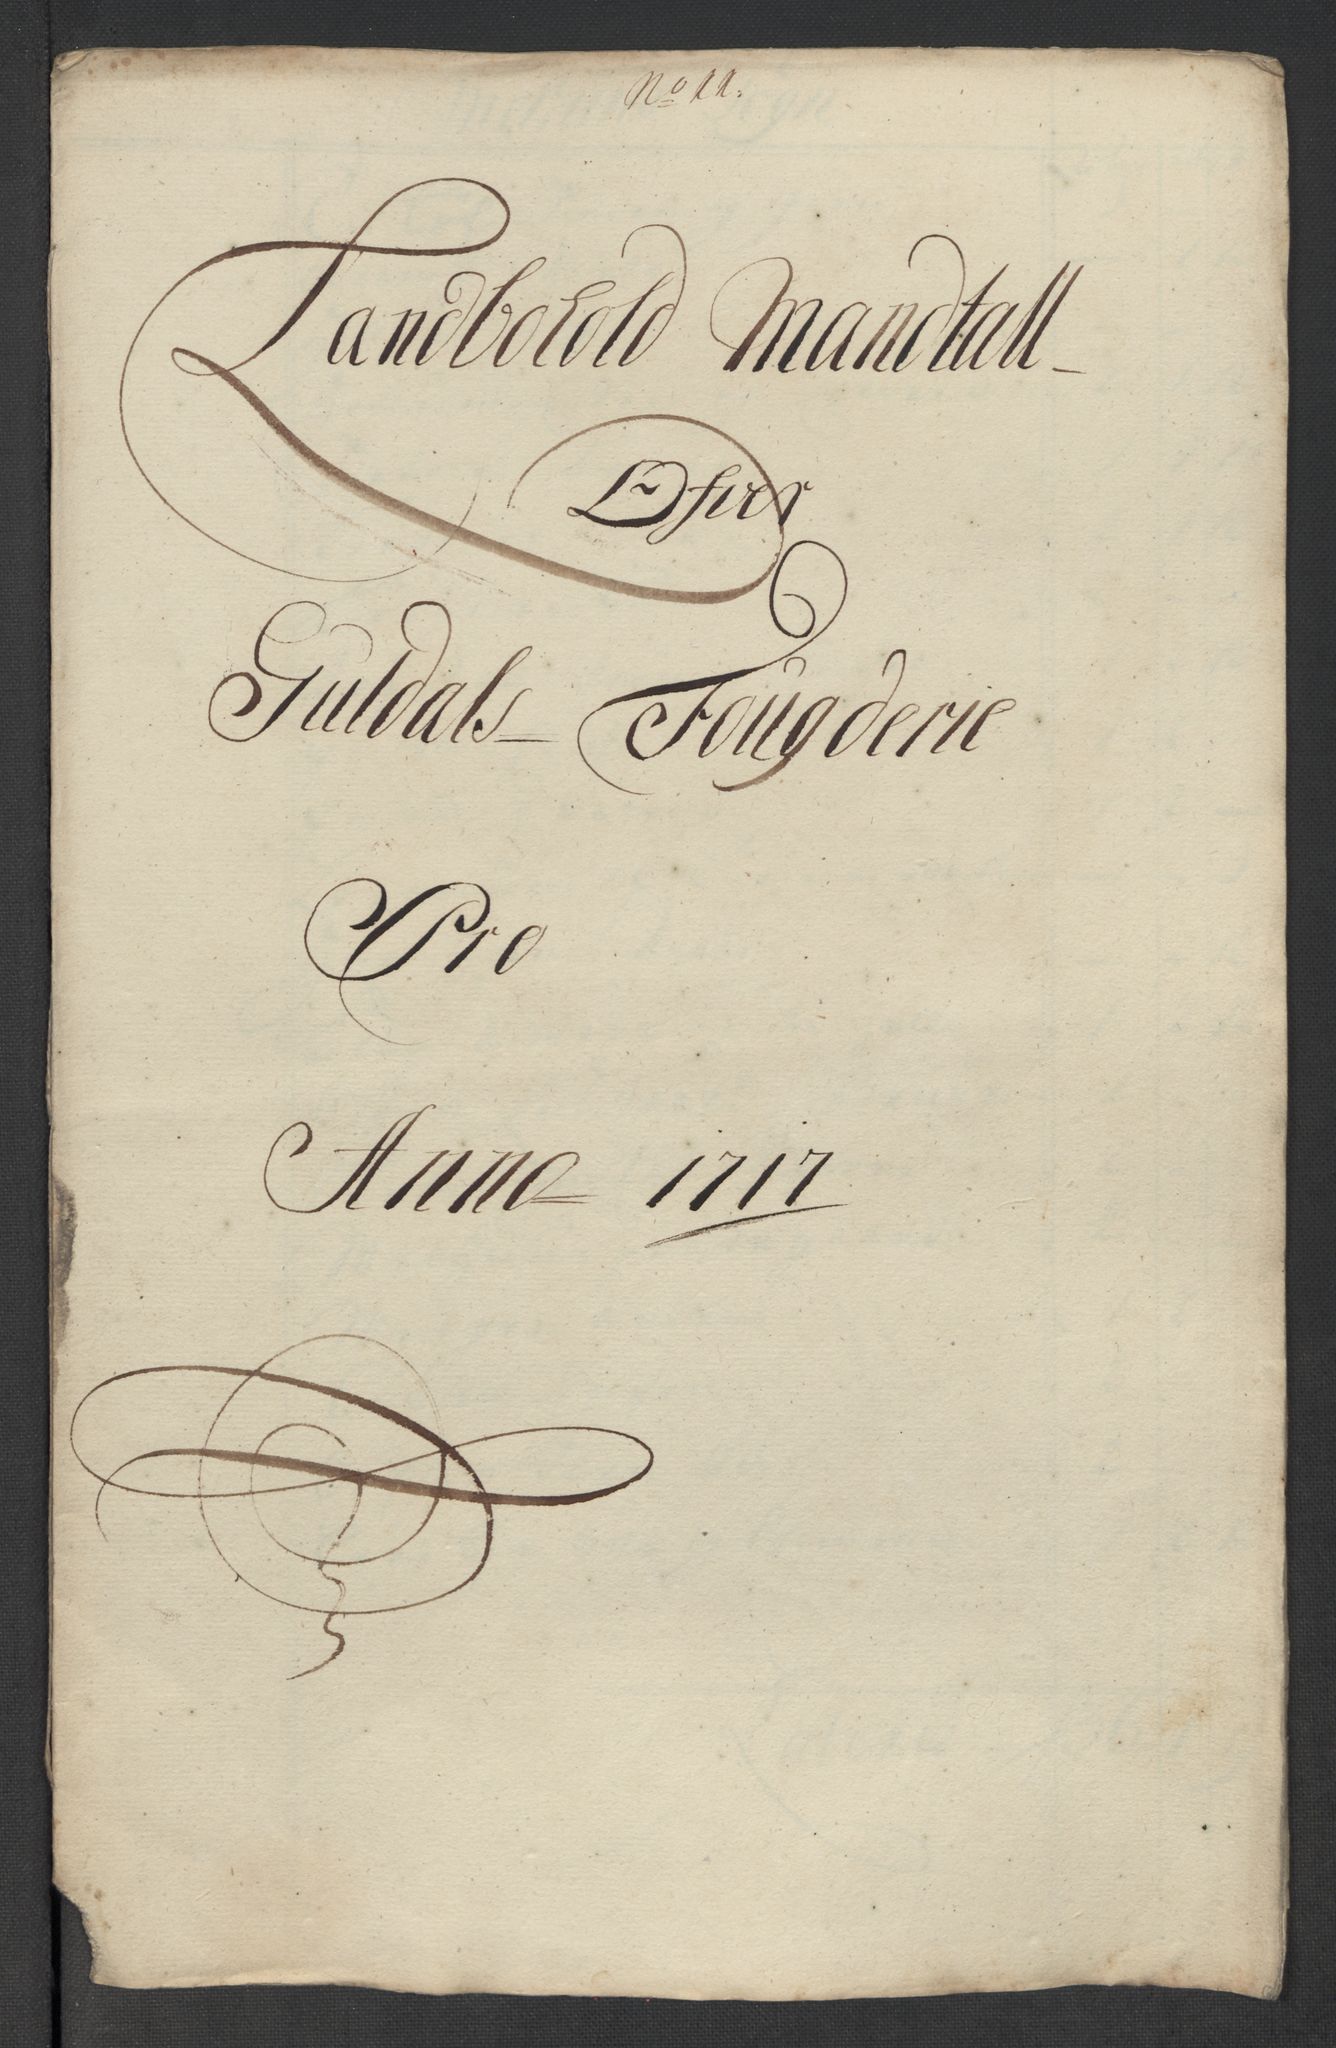 No 11.
Landbohold Mandtall
Ofver
Guldals Fougderie
Pro
Anno 1717